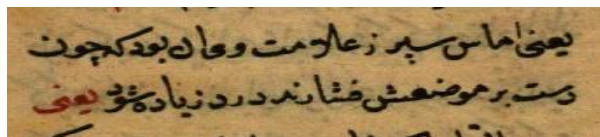 یعنی اماس سپرز علامت وی ان بود که چون
دست بر موضعش فشارند درد زیاده شود یعنی